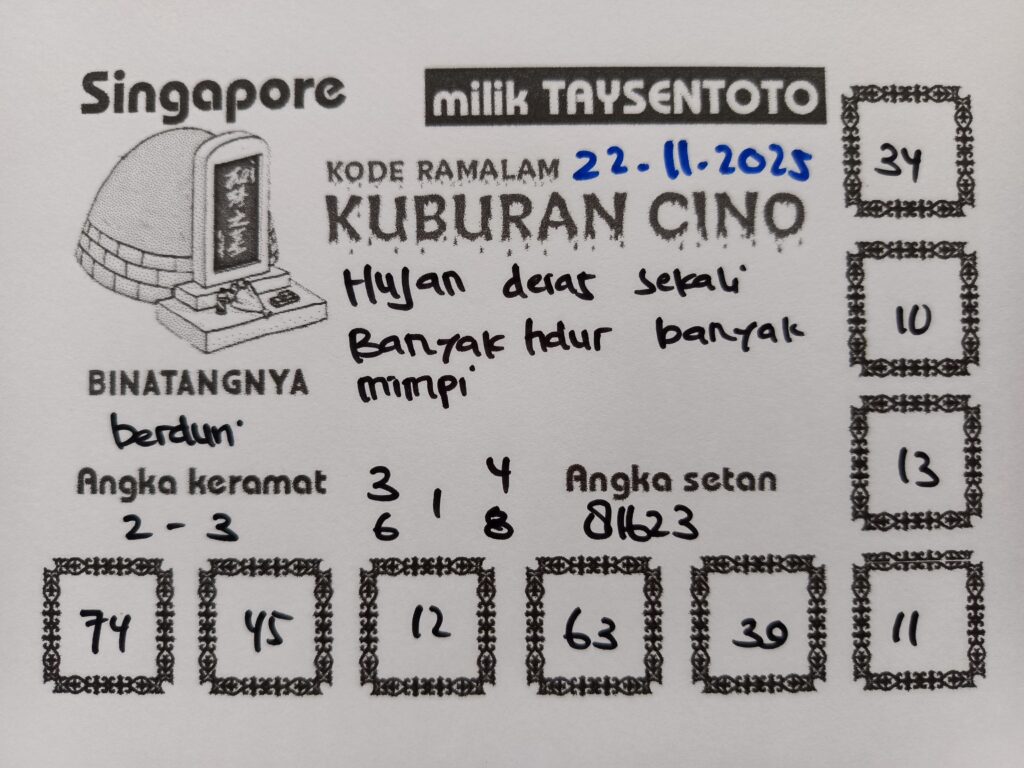 Singapore
milik TAYSENTOTO
KODE RAMALAM 22.11.2025
KUBURAN CINO
Hujan deras sekali
Banyak tidur banyak
mimpi
BINATANGNYA
berduri
Angka keramat
2 - 3
3 4
1
6 8
Angka setan
81623
34
10
13
11
74 45 12 63 30